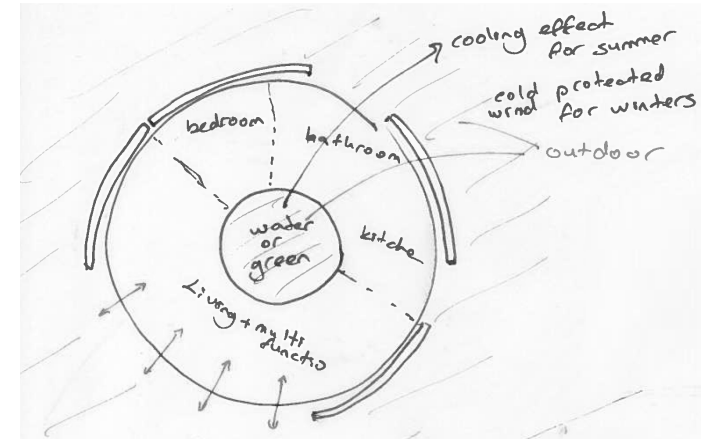 cooling effect
for summer
cold protected
wind for winters
outdoor
bedroom
bathroom
water
or
green
kitche
Living + multi
functio